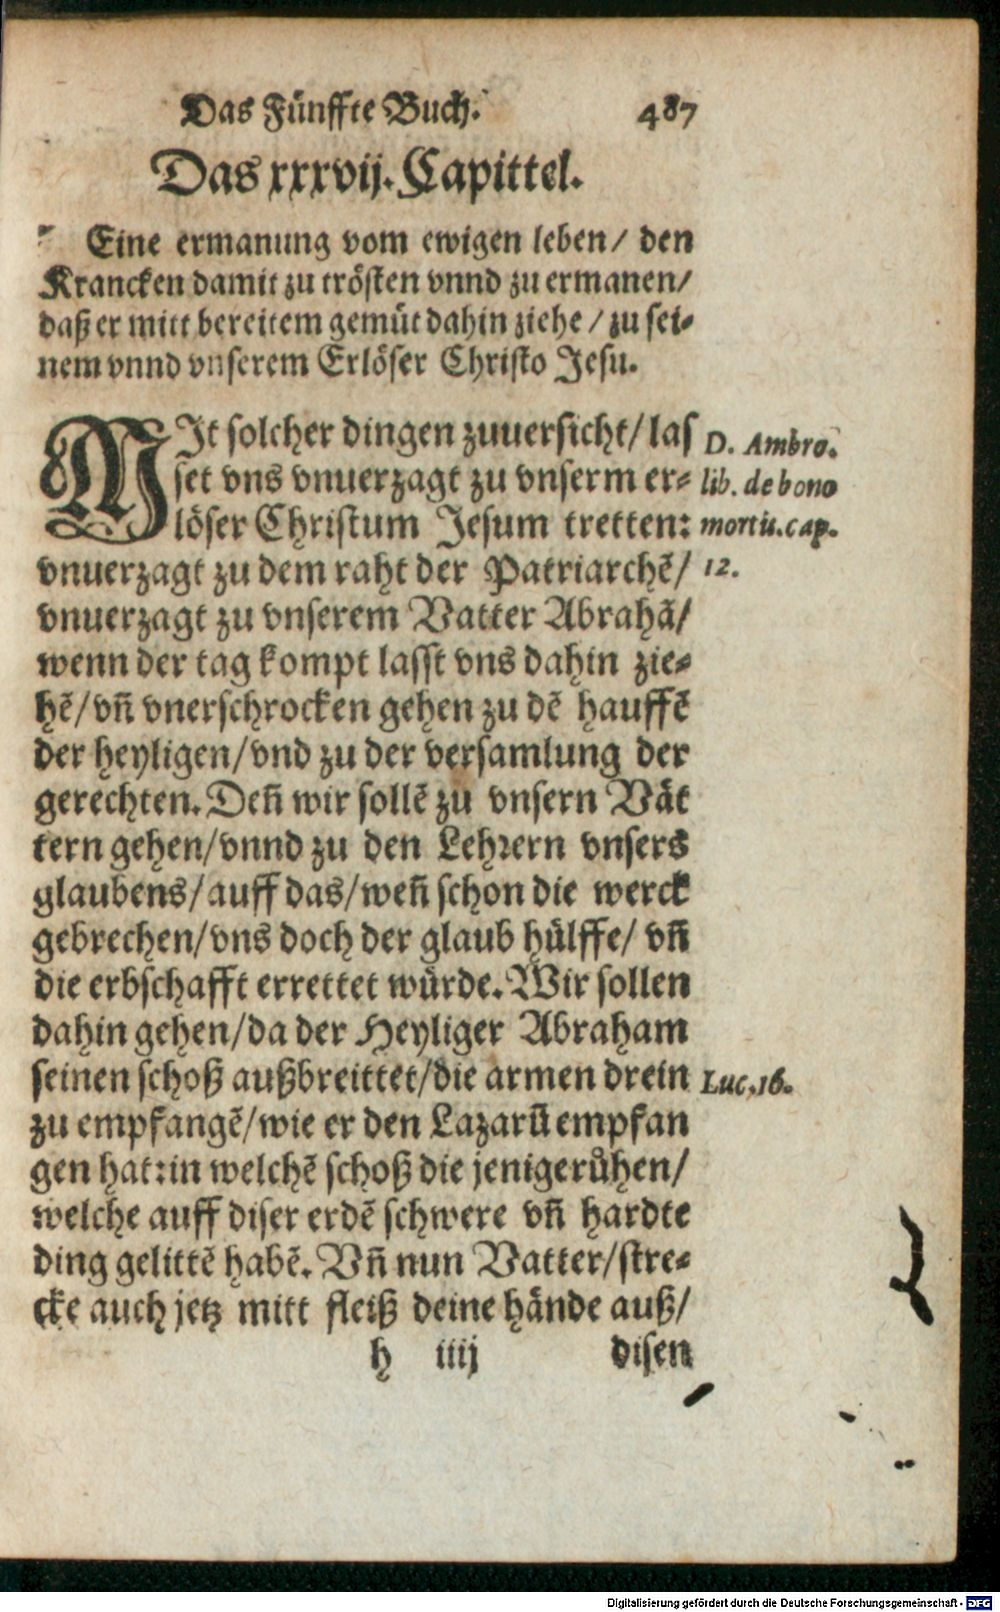 Das Fünffte Buch. 487
Das xxxvij. Capittel.
Eine ermanung vom ewigen leben/ den
Krancken damit zu trösten vnnd zu ermanen/
daß er mitt bereitem gemüt dahin ziehe / zu sei-
nem vnnd vnserem Erlöser Christo Jesu.
MIt solcher dingen zuuersicht/ las
set vns vnuerzagt zu vnserm er-
löser Christum Jesum tretten:
vnuerzagt zu dem raht der Patriarchẽ/
vnuerzagt zu vnserem Vatter Abrahã/
wenn der tag kompt lasst vns dahin zie-
hẽ/ vñ vnerschrocken gehen zu dẽ hauffẽ
der heyligen/ vnd zu der versamlung der
gerechten. Deñ wir sollẽ zu vnsern Vät
tern gehen/ vnnd zu den Lehrern vnsers
glaubens/ auff das/ weñ schon die werck
gebrechen/ vns doch der glaub hülffe/ vñ
die erbschafft errettet würde. Wir sollen
dahin gehen/ da der Heyliger Abraham
seinen schoß außbreittet/ die armen drein
zu empfangẽ/ wie er den Lazarũ empfan
gen hat: in welchẽ schoß die jenige růhen/
welche auff diser erdẽ schwere vñ hardte
ding gelittẽ habẽ. Vñ nun Vatter/ stre-
cke auch jetz mitt fleiß deine hände auß/
h iiij disen
D. Ambro.
lib. de bono
mortis. cap.
12.
Luc. 16.
Digitalisierung gefördert durch die Deutsche Forschungsgemeinschaft - DFG